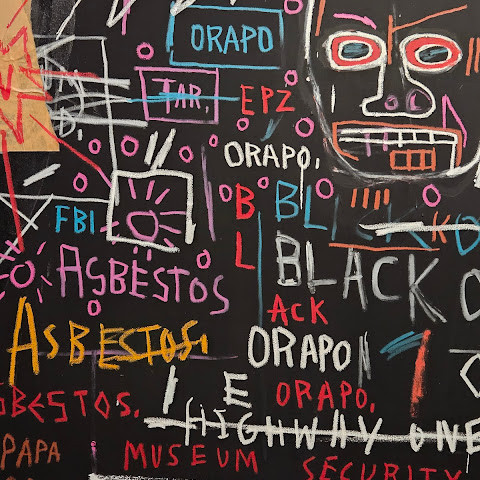 ORAPO
TAR,
EPZ
ORAPO,
FBI
B BL
L
ASBESTOS
BLACK
ACK
ASBESTOS
ORAPO
E ORAPO,
SBESTOS.
HIGHWAY ONE
PAPA
MUSEUM
SECURITY